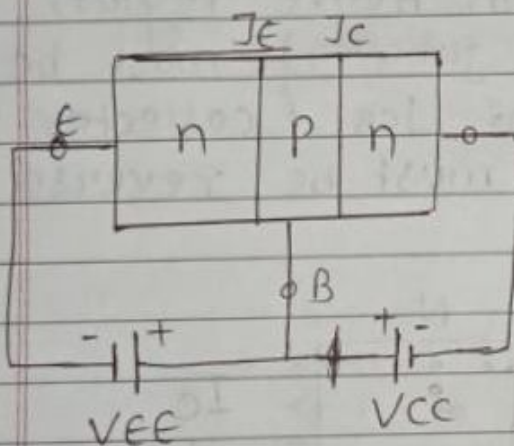 JE JC
E n p n
B
- + + -
VEE VCC